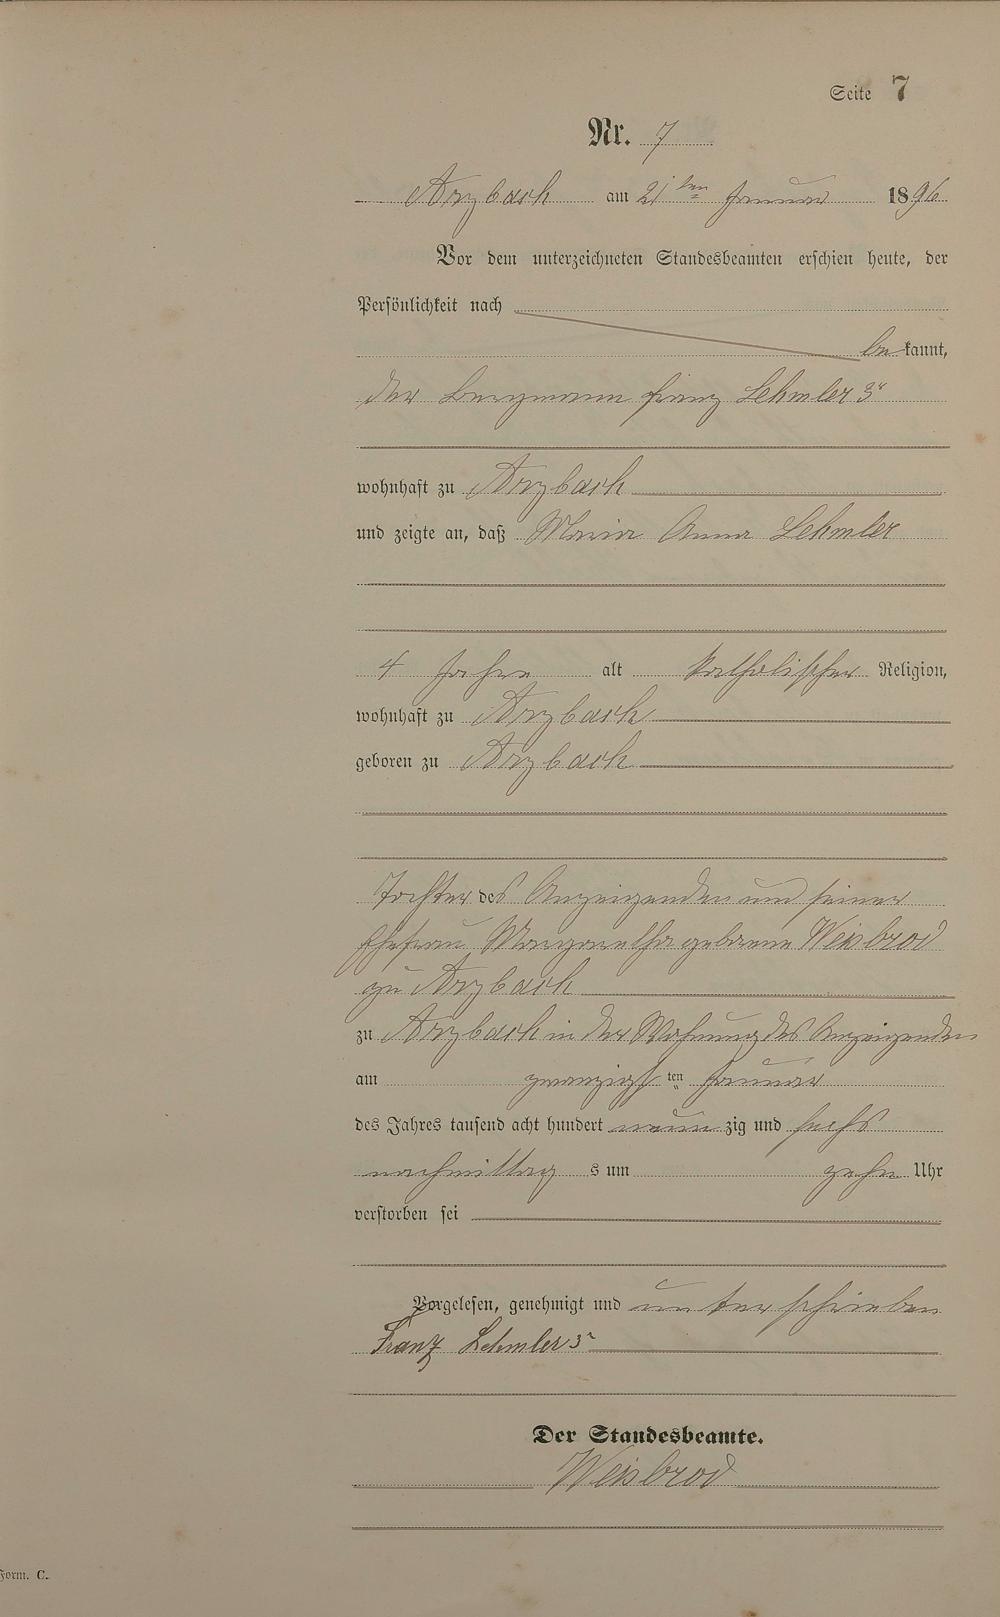 Seite 7
Nr. 7
Arzbach am 21ten Januar 1896
Vor dem unterzeichneten Standesbeamten erschien heute, der
Persönlichkeit nach
be kannt,
der Bergmann Franz Lehmler 3r
wohnhaft zu Arzbach
und zeigte an, daß Maria Anna Lehmler
4 Jahre alt katholischer Religion,
wohnhaft zu Arzbach
geboren zu Arzbach
Tochter des Anzeigenden und seiner
Ehefrau Margaretha geborene Weisbrod
zu Arzbach
zu Arzbach in der Wohnung des Anzeigenden
am zwanzigsten Januar
des Jahres tausend acht hundert neun zig und sechs
nachmittag s um zehn Uhr
verstorben sei
Vorgelesen, genehmigt und unterschrieben
Franz Lehmler 3r
Der Standesbeamte.
Weisbrod
Form. C.